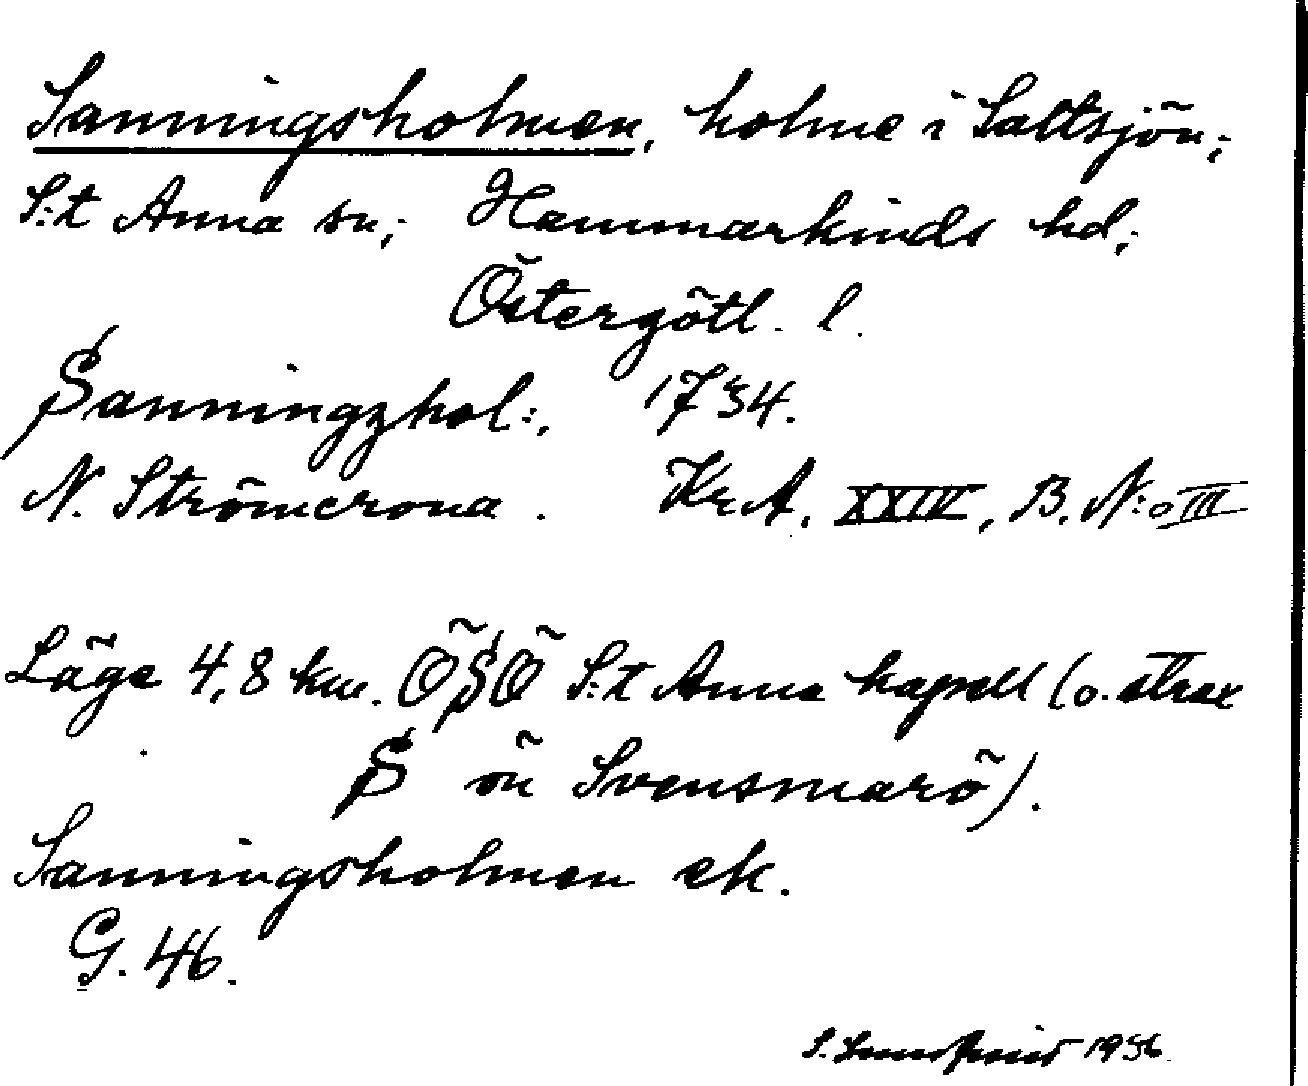 Sanningsholmen, holme i Saltsjön;
S:t Anna sn; Hammarkinds hd;
Östergötl. l.
Sanningzhol:, 1734.
N. Strömcrona. KrA, XXIV, B. N:o III
Läge 4,8 km. ÖSÖ S:t Anna kapell (o. strax
S om Svensmarö).
Sanningsholmen ek.
G. 46.
S. 1936